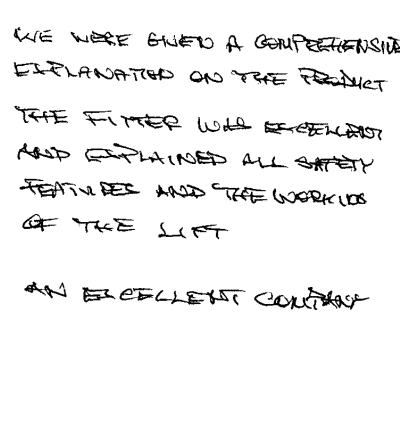 WE WERE GIVEN A COMPREHENSIVE
EXPLANATION ON THE PRODUCT
THE FITTER WAS EXCELLENT
AND EXPLAINED ALL SAFETY
FEATURES AND THE WORKING
OF THE LIFT
AN EXCELLENT COMPANY